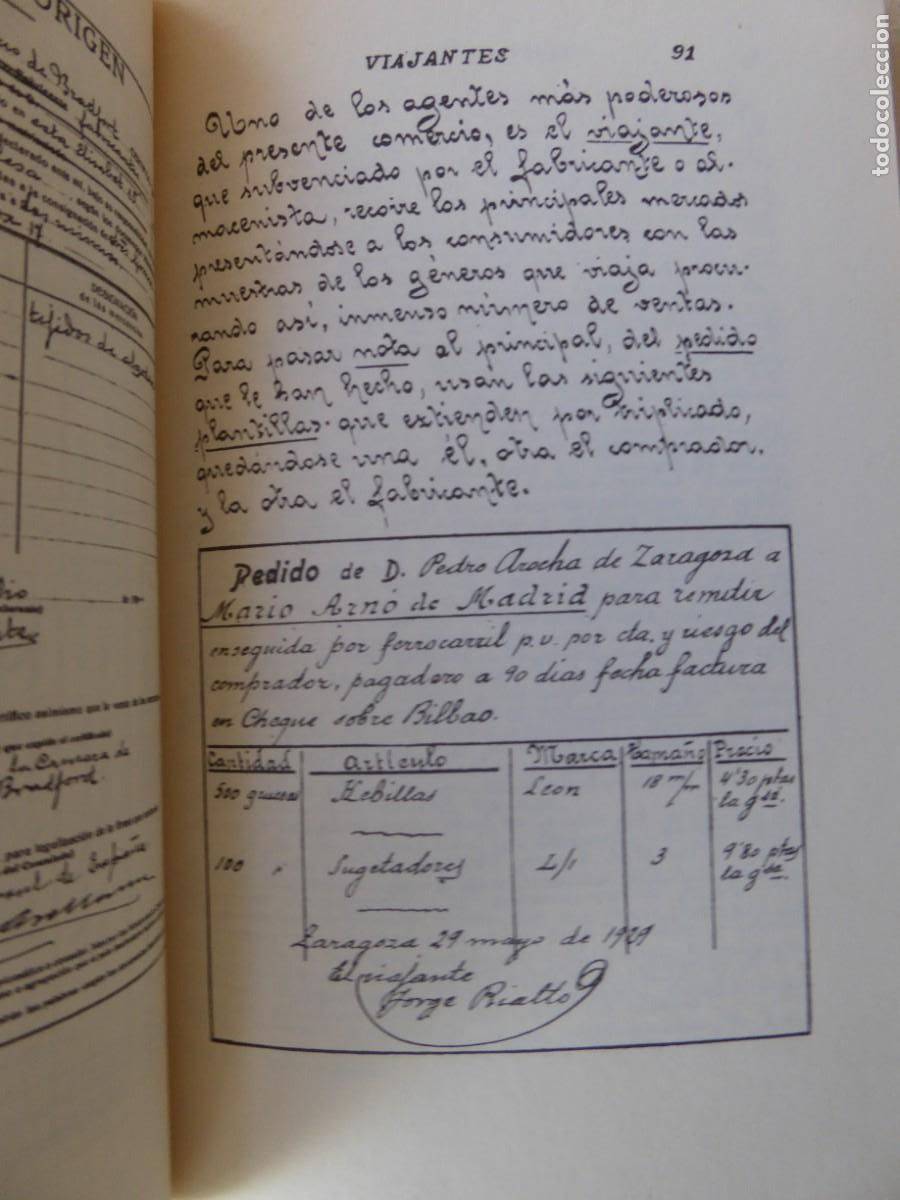 ORIGEN
de Bradfort
DESIGNACIÓN
de las mercancías
tejidos de algod
la Camara de
Bradford.
VIAJANTES 91
Uno de los agentes más poderosos
del presente comercio, es el viajante,
que subvenciado por el fabricante o al-
macenista, recorre los principales mercados
presentándose a los consumidores con las
muestras de los géneros que viaja procu-
rando así, inmenso número de ventas.
Para pasar nota al principal, del pedido
que le han hecho, usan las siguientes
plantillas que extienden por triplicado,
quedándose una él, otra el comprador,
y la otra el fabricante.
Pedido de D. Pedro Arocha de Zaragoza a
Mario Arnó de Madrid para remitir
enseguida por ferrocarril p.v. por cta. y riesgo del
comprador, pagadero a 90 días fecha factura
en Cheque sobre Bilbao.
Cantidad Artículo Marca Tamaño Precio
500 gruesas Hebillas Leon 18 m/m 4'30 ptas
la gsa.
100 " Sugetadores L/1 3 9'80 ptas
la gsa.
Zaragoza 29 mayo de 1929
El viajante
Jorge Rialto
todocoleccion